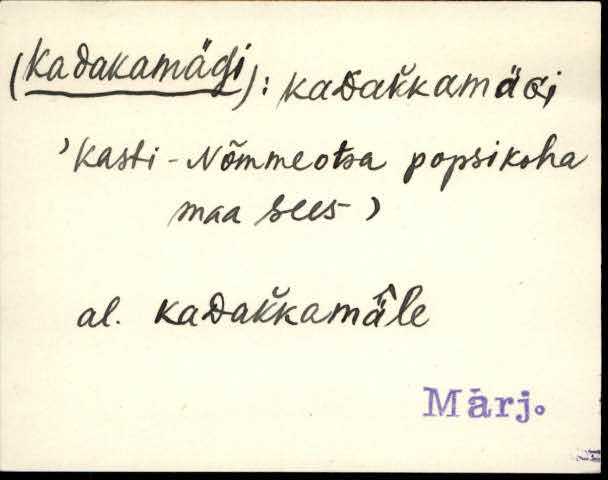 (Kadakamägi): kaDak̆kamäGi
'Kasti-Nõmmeotsa popsikoha
maa sees'
al. kaDak̆kamä̂le
Märj.